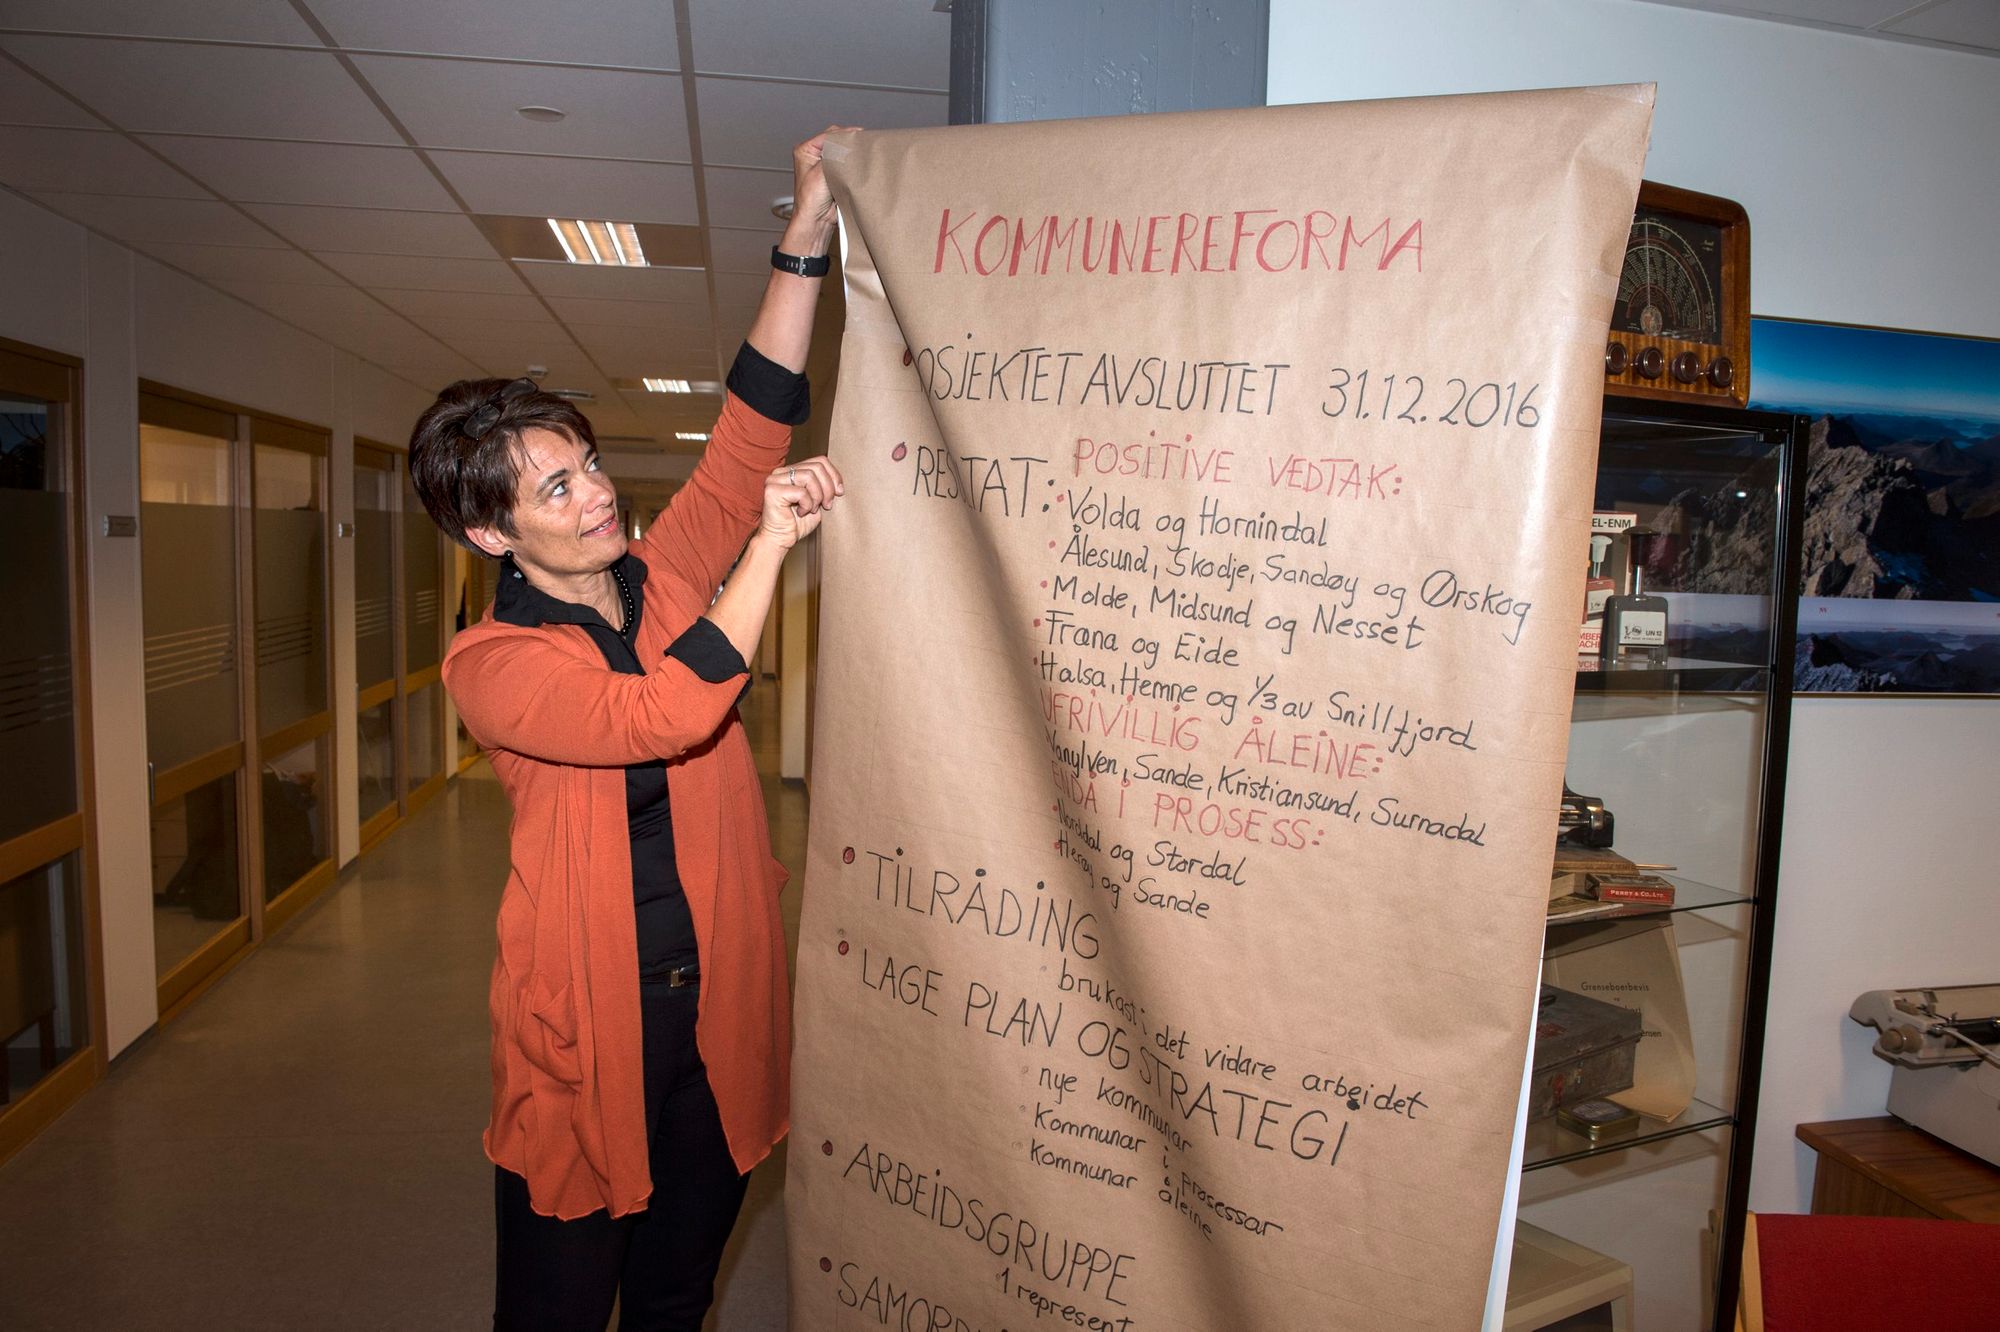 KOMMUNEREFORMA
OSJEKTET AVSLUTTET 31.12.2016
RESTAT:
POSITIVE VEDTAK:
Volda og Hornindal
Ålesund, Skodje, Sandøy og Ørskog
Molde, Midsund og Nesset
Fræna og Eide
Halsa, Hemne og 1/3 av Snillfjord
UFRIVILLIG ÅLEINE:
Vanylven, Sande, Kristiansund, Surnadal
ENDA I PROSESS:
Norddal og Stordal
Herøy og Sande
TILRÅDING
brukast i det vidare arbeidet
LAGE PLAN OG STRATEGI
nye kommunar
Kommunar i prosessar
Kommunar åleine
ARBEIDSGRUPPE
1 represent
SAMORD
EL-ENM
UN 12
PERRY & CO. LTD.
Grenseboerbevis